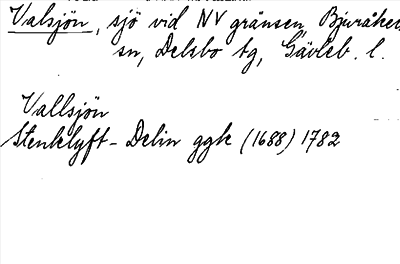 Valsjön, sjö vid NV gränsen, Bjuråkers
sn, Delsbo tg, Gävleb. l.
Vallsjön
Stenklyft - Delin ggk (1688) 1782